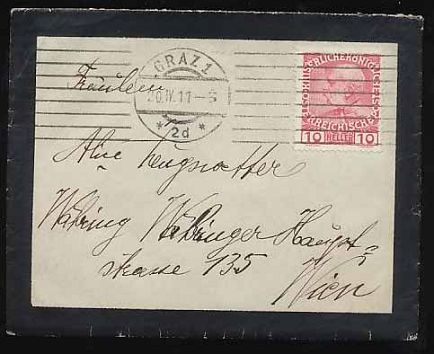 GRAZ 1
20.IV.11
* 2d *
KAISERLICHE KÖNIGLICHE ÖSTERREICHISCHE POST
10 HELLER 10
Fräulein
Währing Währinger Haupt=
strasse 135
Wien